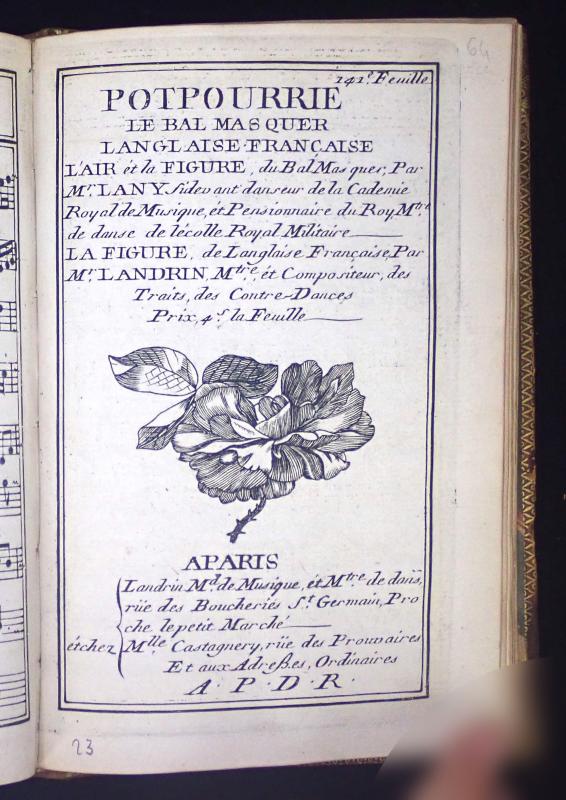 64
141.e Feuille
POTPOURRIE
LE BAL MAS QUER
LANGLAISE-FRANÇAISE
L'AIR ét la FIGURE, du Bal Mas ques, Par
Mr. LANY Sidevant danseur de la Cademie
Royal de Musique, ét Pensionnaire du Roy Mtre.
de danse de lécolle Royal Militaire
LA FIGURE, de Langlaise Française, Par
Mr. LANDRIN, Mtre, ét Compositeur, des
Traits, des Contre-Dances
Prix, 4s. la Feuille
APARIS
Landrin Md. de Musique, ét Mtre. de dans,
rüe des Boucheriés St. Germain, Pro
che le petit Marché
étchez Mlle Castagnery, rüe des Prouvaires
Et aux Adreßes, Ordinaires
A. P. D. R.
23